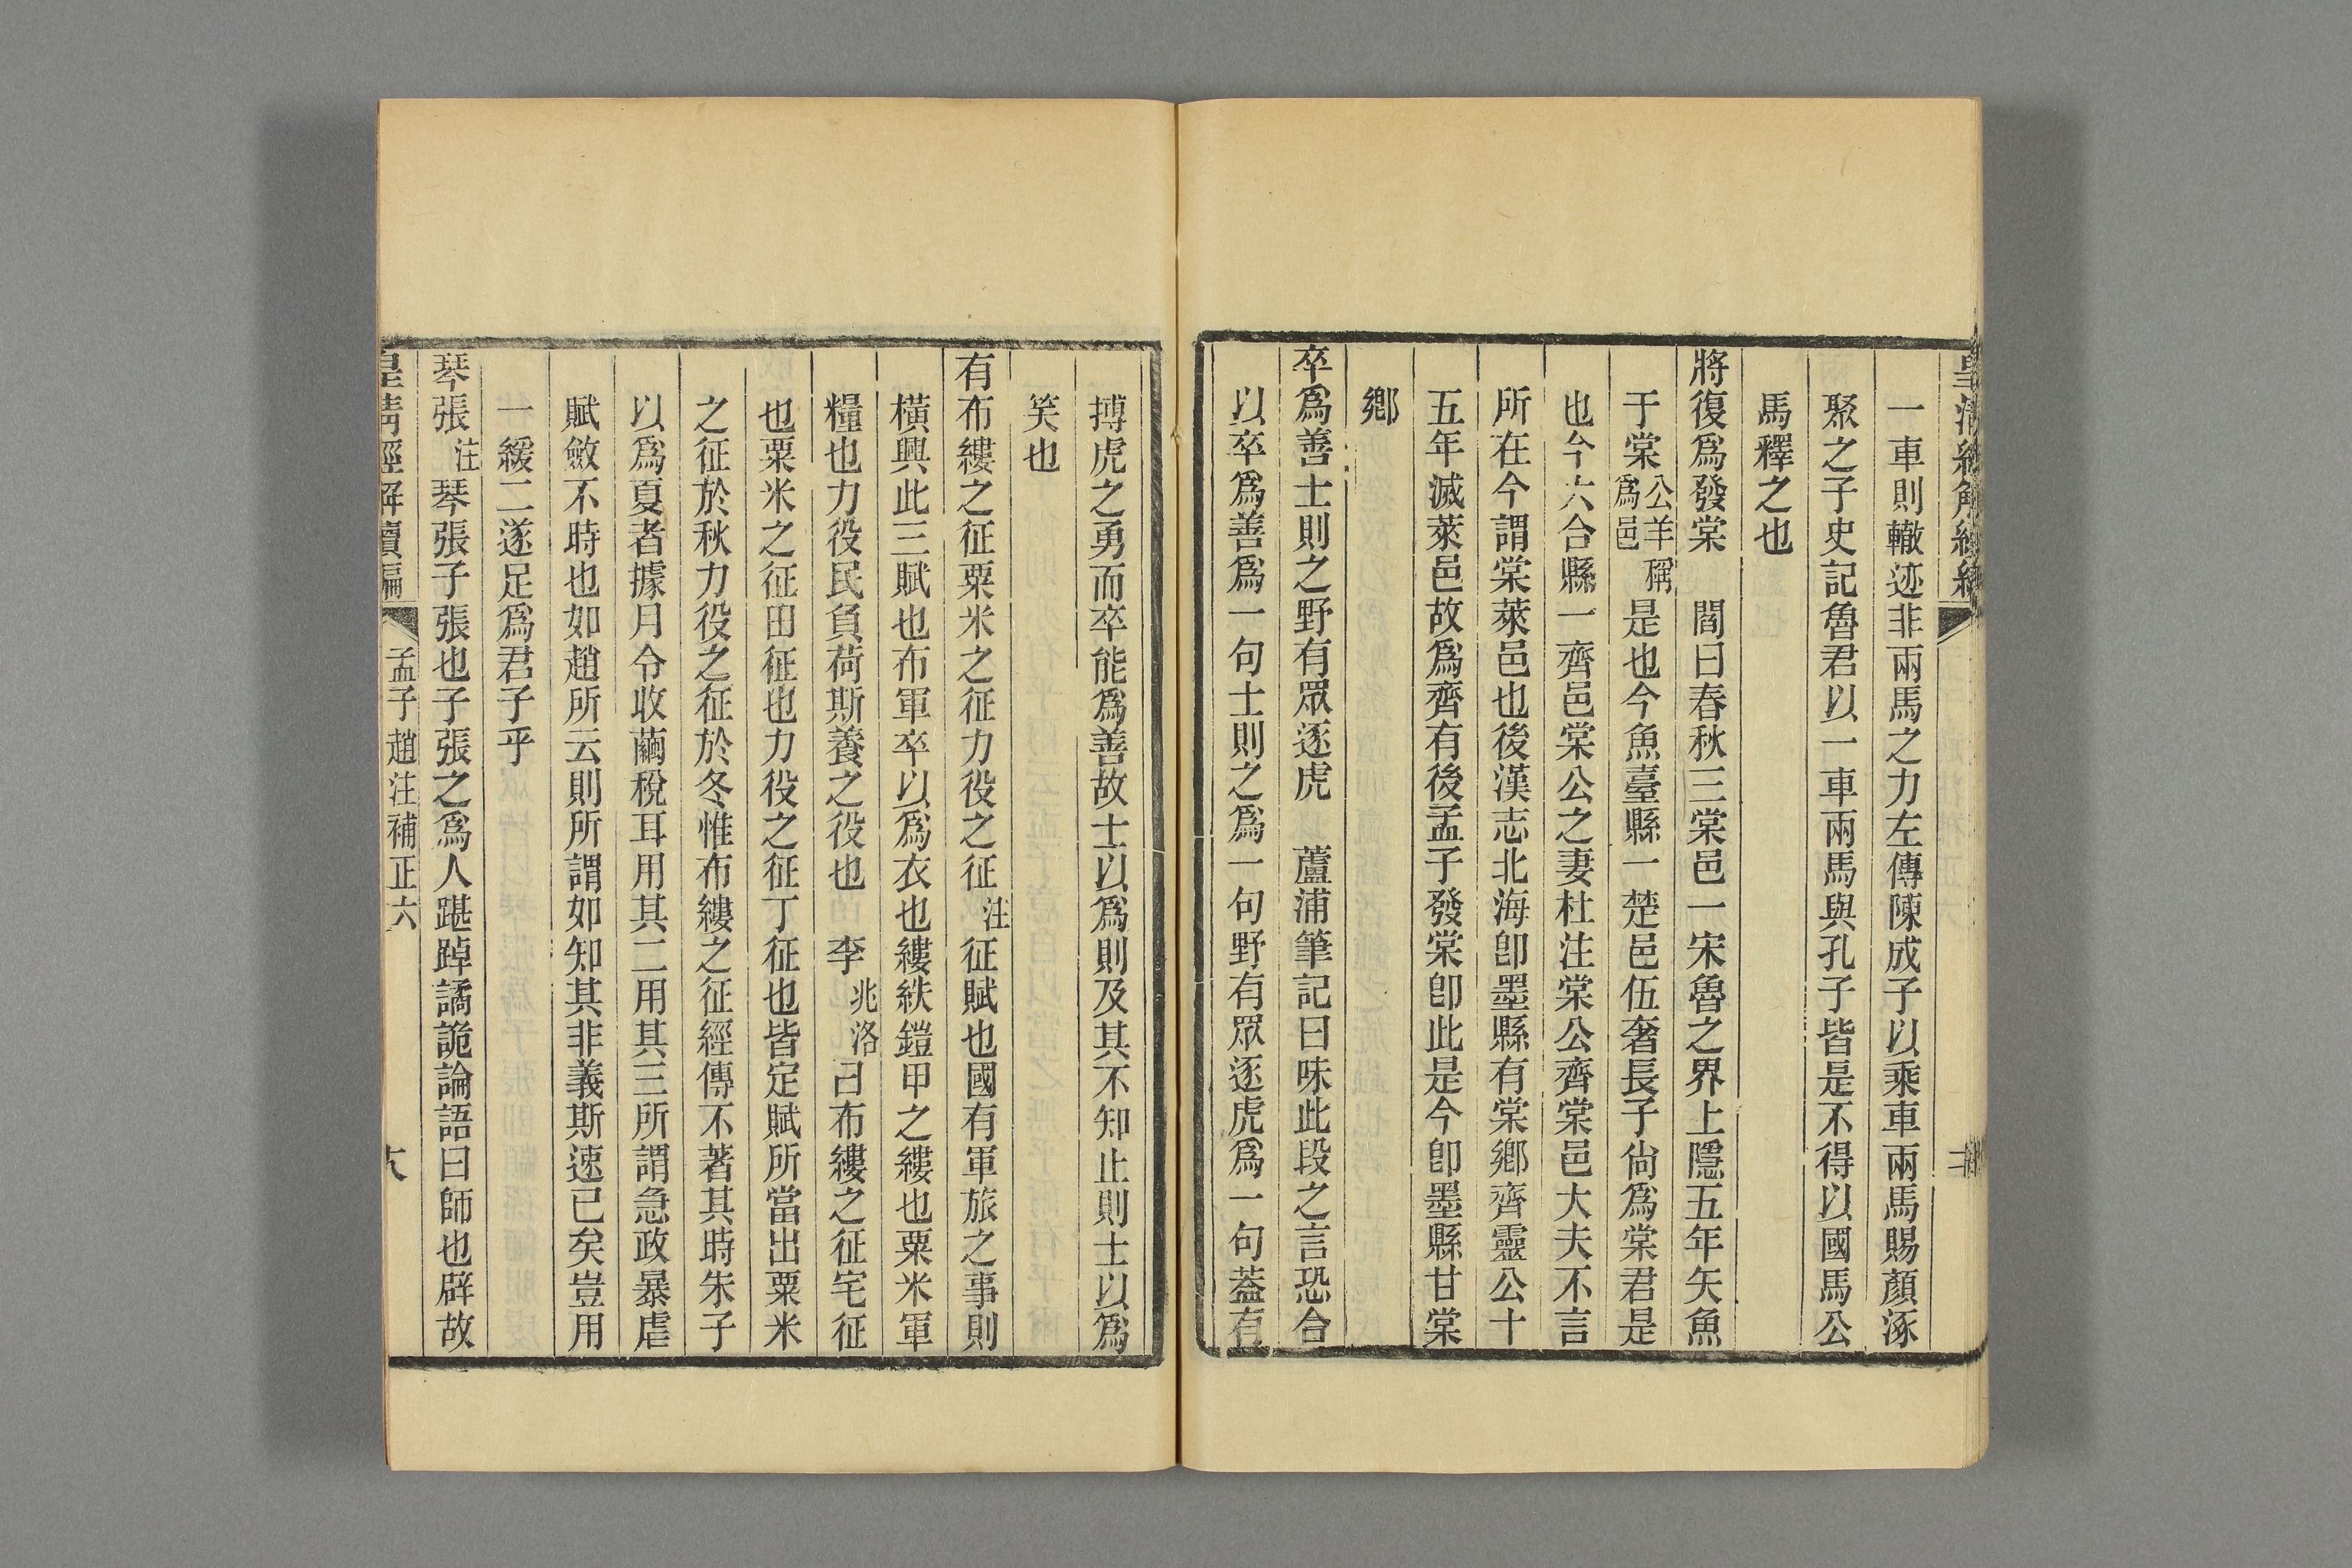 皇清經解續編
一車則轍迹非兩馬之力左傳陳成子以乘車兩馬賜顏涿
聚之子史記魯君以一車兩馬與孔子皆是不得以國馬公
馬釋之也
將復爲發棠　閻曰春秋三棠邑一宋魯之界上隱五年矢魚
于棠公羊稱爲邑是也今魚臺縣一楚邑伍奢長子尙爲棠君是
也今六合縣一齊邑棠公之妻杜注棠公齊棠邑大夫不言
所在今謂棠萊邑也後漢志北海卽墨縣有棠鄉齊靈公十
五年滅萊邑故爲齊有後孟子發棠卽此是今卽墨縣甘棠
鄉
卒爲善士則之野有眾逐虎　蘆浦筆記曰味此段之言恐合
以卒爲善爲一句士則之爲一句野有眾逐虎爲一句葢有
搏虎之勇而卒能爲善故士以爲則及其不知止則士以爲
笑也
有布縷之征粟米之征力役之征注征賦也國有軍旅之事則
橫興此三賦也布軍卒以爲衣也縷紩鎧甲之縷也粟米軍
糧也力役民負荷斯養之役也　李兆洛曰布縷之征宅征
也粟米之征田征也力役之征丁征也皆定賦所當出粟米
之征於秋力役之征於冬惟布縷之征經傳不著其時朱子
以爲夏者據月令收繭稅耳用其二用其三所謂急政暴虐
賦斂不時也如趙所云則所謂如知其非義斯速已矣豈用
一緩二遂足爲君子乎
琴張注琴張子張也子張之爲人踸踔譎詭論語曰師也辟故
皇清經解續編　孟子趙注補正六　六